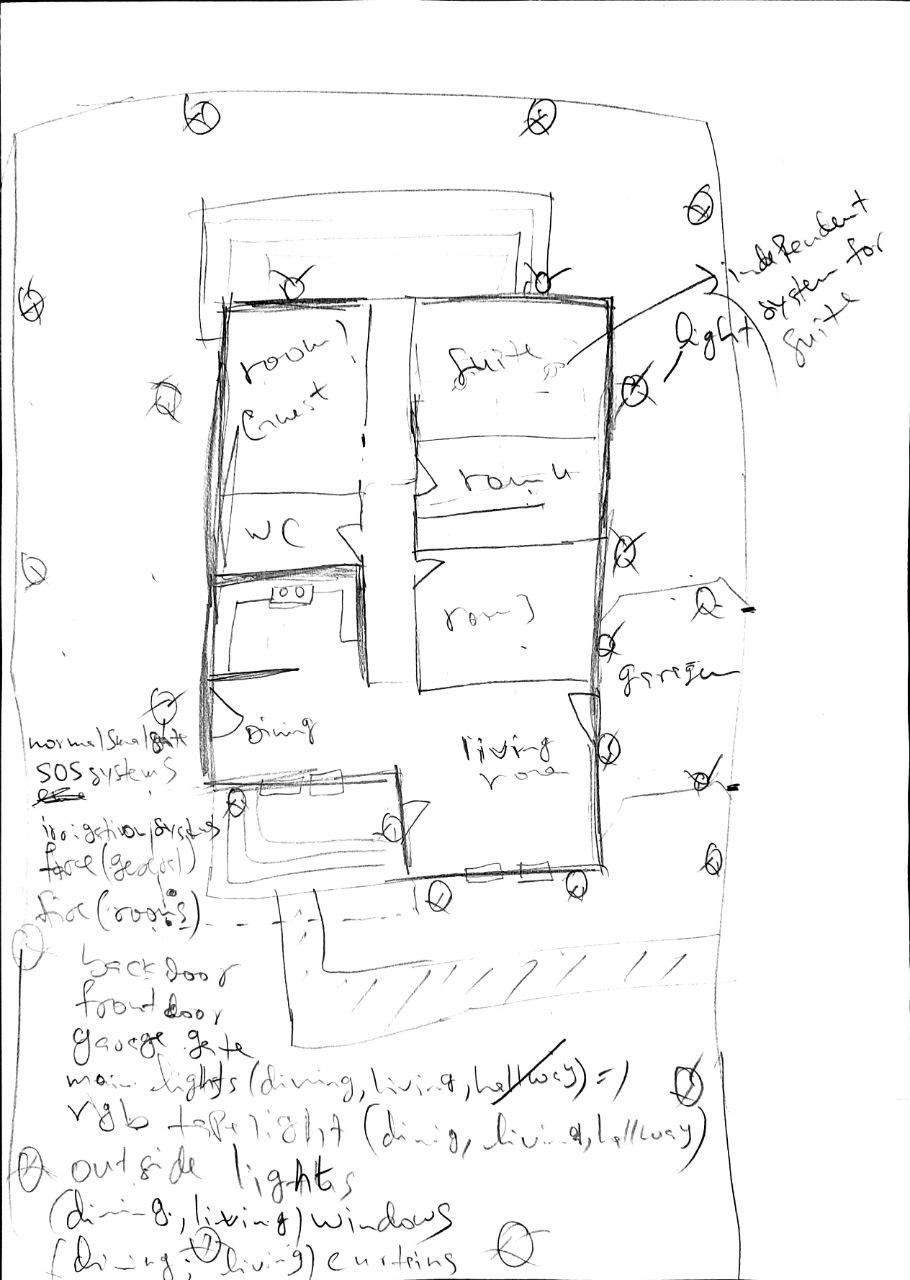 independent
system for
suite
light
room 1
Guest
Suite
room 4
WC
room 3
garage
Dining
living
room
normal small gate
SOS systems
irrigation systems
fire (rooms)
backdoor
frontdoor
garage gate
main lights (dining, living, hallway) = 1
rgb tape light (dinig, living, hallway)
outside lights
(dining, living) windows
(dining, living) curtains